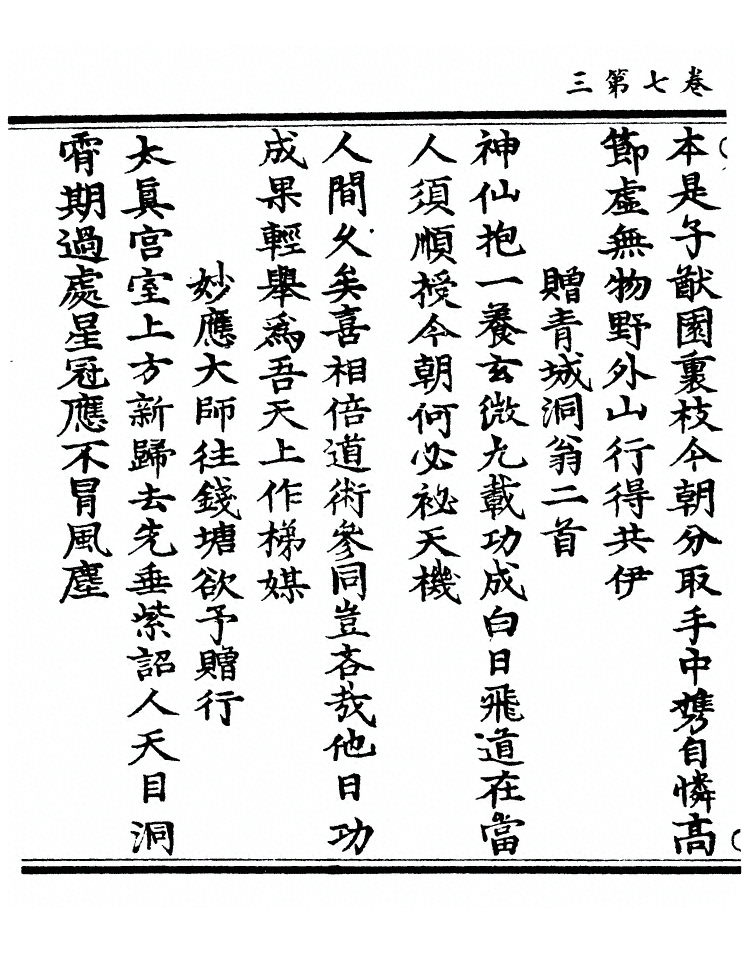 卷七第三
本是子猷園裏枝今朝分取手中携自憐高
節虛無物野外山行得共伊
贈青城洞翁二首
神仙抱一養玄微九載功成白日飛道在當
人須順授今朝何必祕天機
人間久矣喜相倍道術參同豈吝哉他日功
成果輕舉爲吾天上作梯媒
妙應大師往錢塘欲予贈行
太眞宮室上方新歸去先垂紫詔人天目洞
霄期過處星冠應不冒風塵